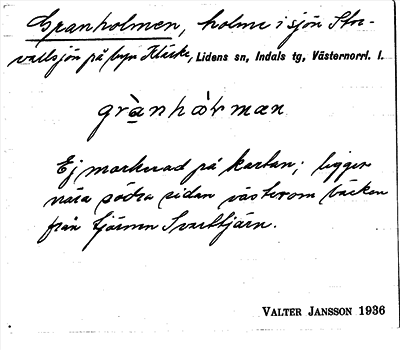 Granholmen, holme i sjön Stor-
vallsjön på byn Kläcke, Lidens sn, Indals tg, Västernorrl. l.
grànhòlman
Ej markerad på kartan; ligger
nära södra sidan västerom bäcken
från tjärnen Svarttjärn.
VALTER JANSSON 1936